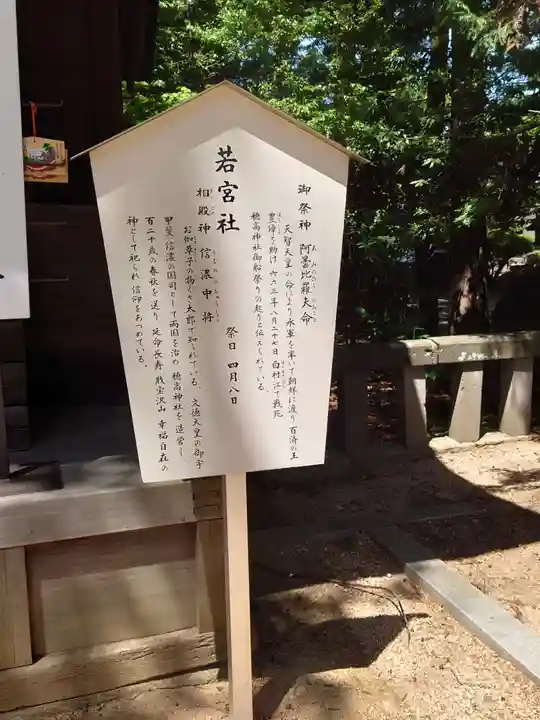 若宮社
祭日 四月八日
御祭神 阿曇比羅夫命
天智天皇の命により水軍を率いて朝鮮に渡り百済の王
豊璋を助け 六六三年八月二十七日 白村江で戦死
穂高神社御船祭りの起りと伝えられている。
相殿神 信濃中将
お伽草子の物くさ太郎で知られている、文徳天皇の御子
甲斐 信濃の国司として両国を治め 穂高神社を造営し
百二十歳の春秋を送り 延命長寿 財宝沢山 幸福自在の
神として祀られ 信仰をあつめている。